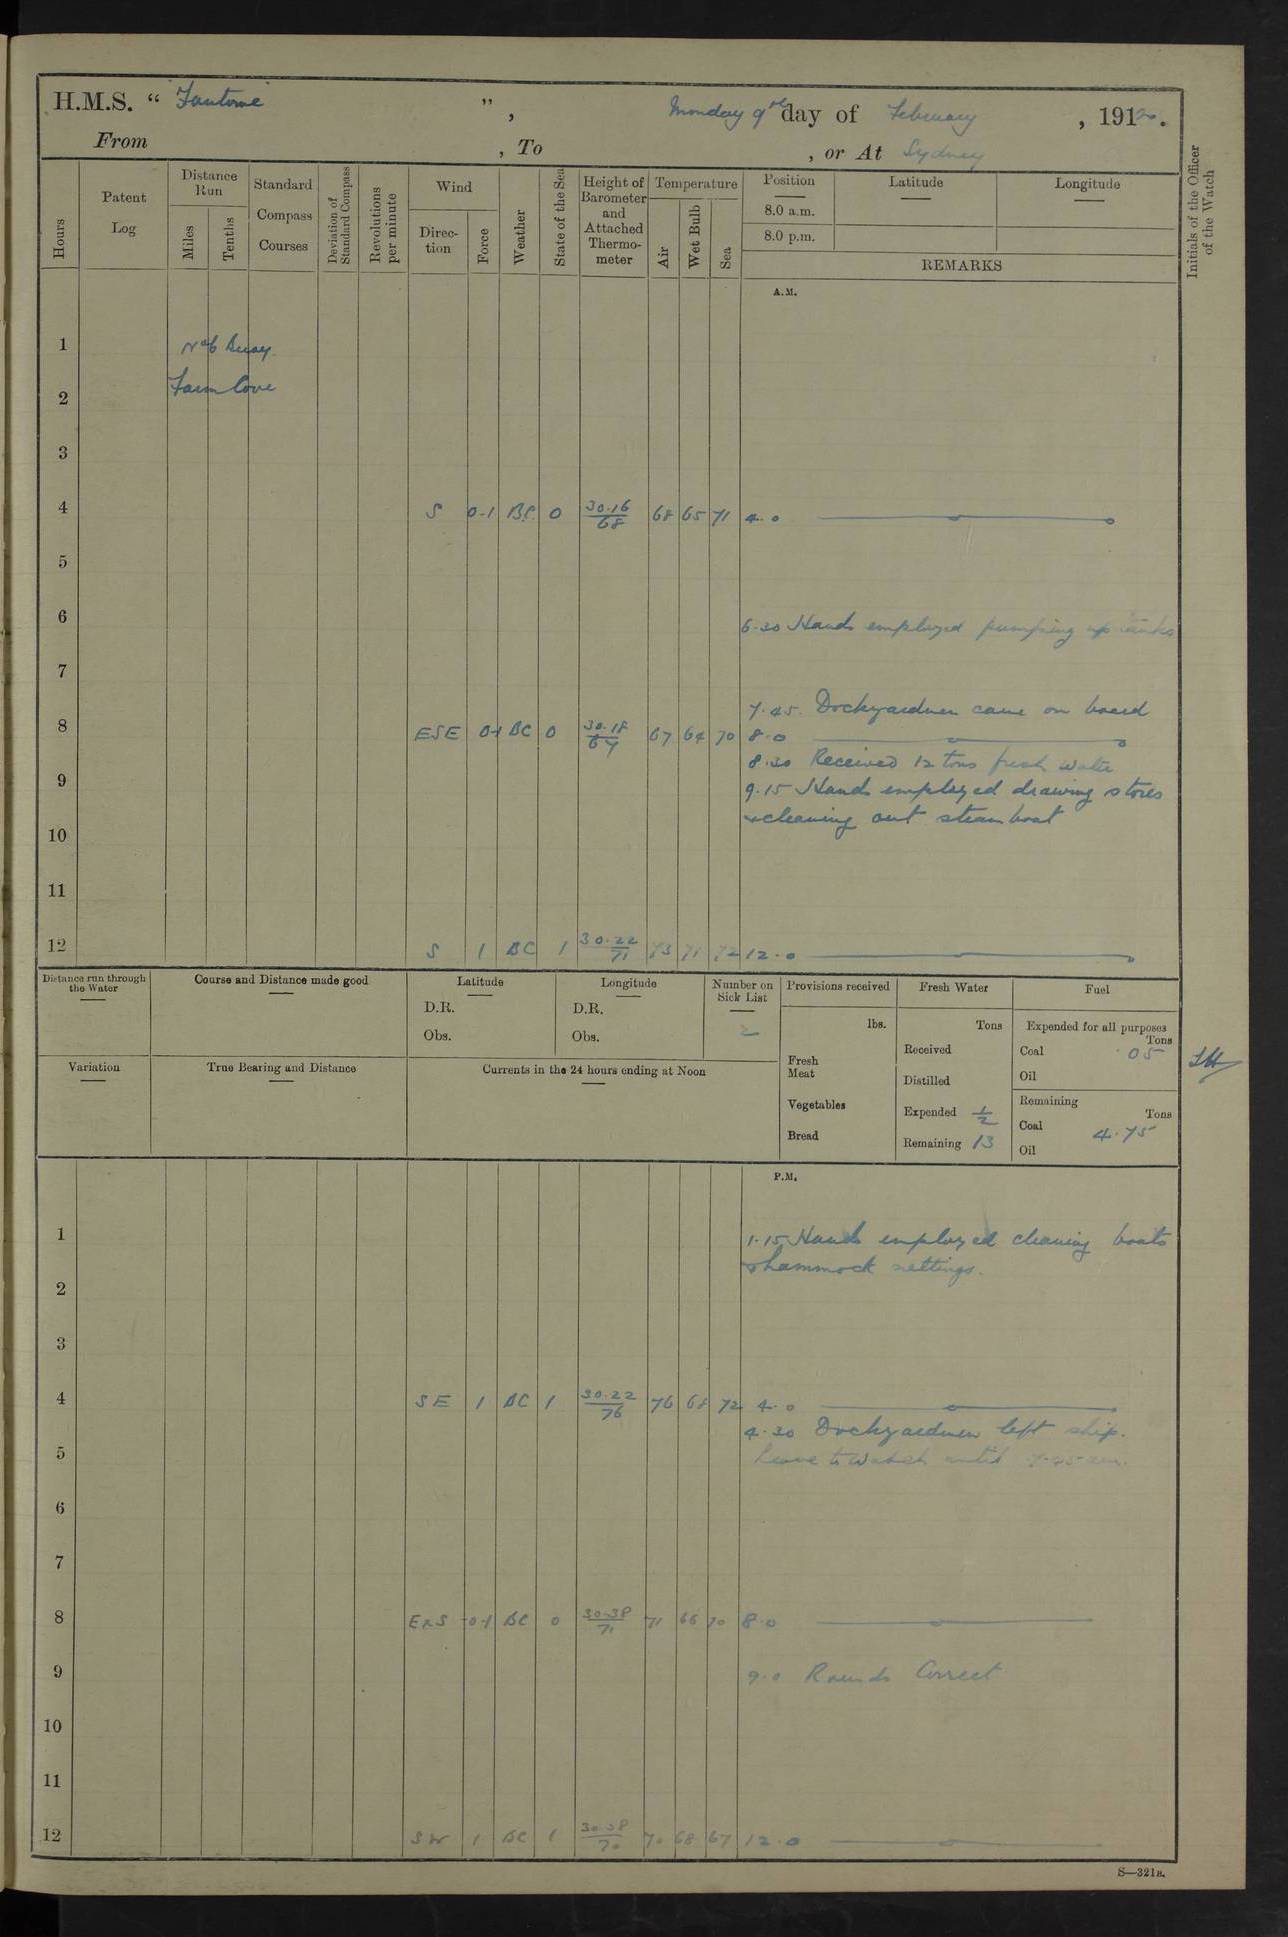 H.M.S. “ Fantome ”, Monday 9th day of February , 1912.
From , To , or At Sydney
Hours
Patent Log
Distance Run
Miles
Tenths
Standard Compass Courses
Deviation of Standard Compass
Revolutions per minute
Wind
Direc-tion
Force
Weather
State of the Sea
Height of Barometer and Attached Thermo-meter
Temperature
Air
Wet Bulb
Sea
Position
8.0 a.m.
8.0 p.m.
Latitude
Longitude
REMARKS
Initials of the Officer of the Watch
A.M.
1 No 6 Buoy.
2 Farm Cove
3
4 S 0-1 BC 0 30.16/68 68 65 71 4.0
5
6 6.30 Hands employed pumping up tanks
7
7.45. Dockyardmen came on board
8 ESE 0-1 BC 0 30.18/67 67 64 70 8.0
8.30 Received 12 tons fresh water
9 9.15 Hands employed drawing stores
& cleaning out steam boat
10
11
12 S 1 BC 1 30.22/71 73 71 72 12.0
Distance run through the Water
Course and Distance made good
Latitude
D.R.
Obs.
Longitude
D.R.
Obs.
Number on Sick List
2
Provisions received
lbs.
Fresh Meat
Vegetables
Bread
Fresh Water
Tons
Received
Distilled
Expended 1/2
Remaining 13
Fuel
Expended for all purposes
Tons
Coal .05
Oil
Remaining
Tons
Coal 4.75
Oil
Variation
True Bearing and Distance
Currents in the 24 hours ending at Noon
P.M.
1 1.15 Hands employed cleaning boats
& hammock nettings.
2
3
4 SE 1 BC 1 30.22/76 76 68 72 4.0
4.30 Dockyardmen left ship.
5 Leave to Watch until 7.45 am.
6
7
8 ExS 0-1 BC 0 30.38/71 71 66 70 8.0
9 9.0 Rounds Correct
10
11
12 SW 1 BC 1 30.38/70 70 68 67 12.0
S—321B.